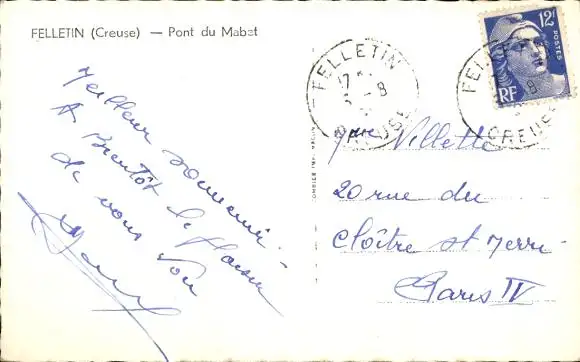 FELLETIN (Creuse) — Pont du Mabat
Meilleur souvenir -
A Bientôt le plaisir
de vous voir
FELLETIN
17
8
CREUSE
FELLETIN
8
CREUSE
12F
POSTES
RF
Mme Villette
20 rue du
Cloître St Merri
Paris IV